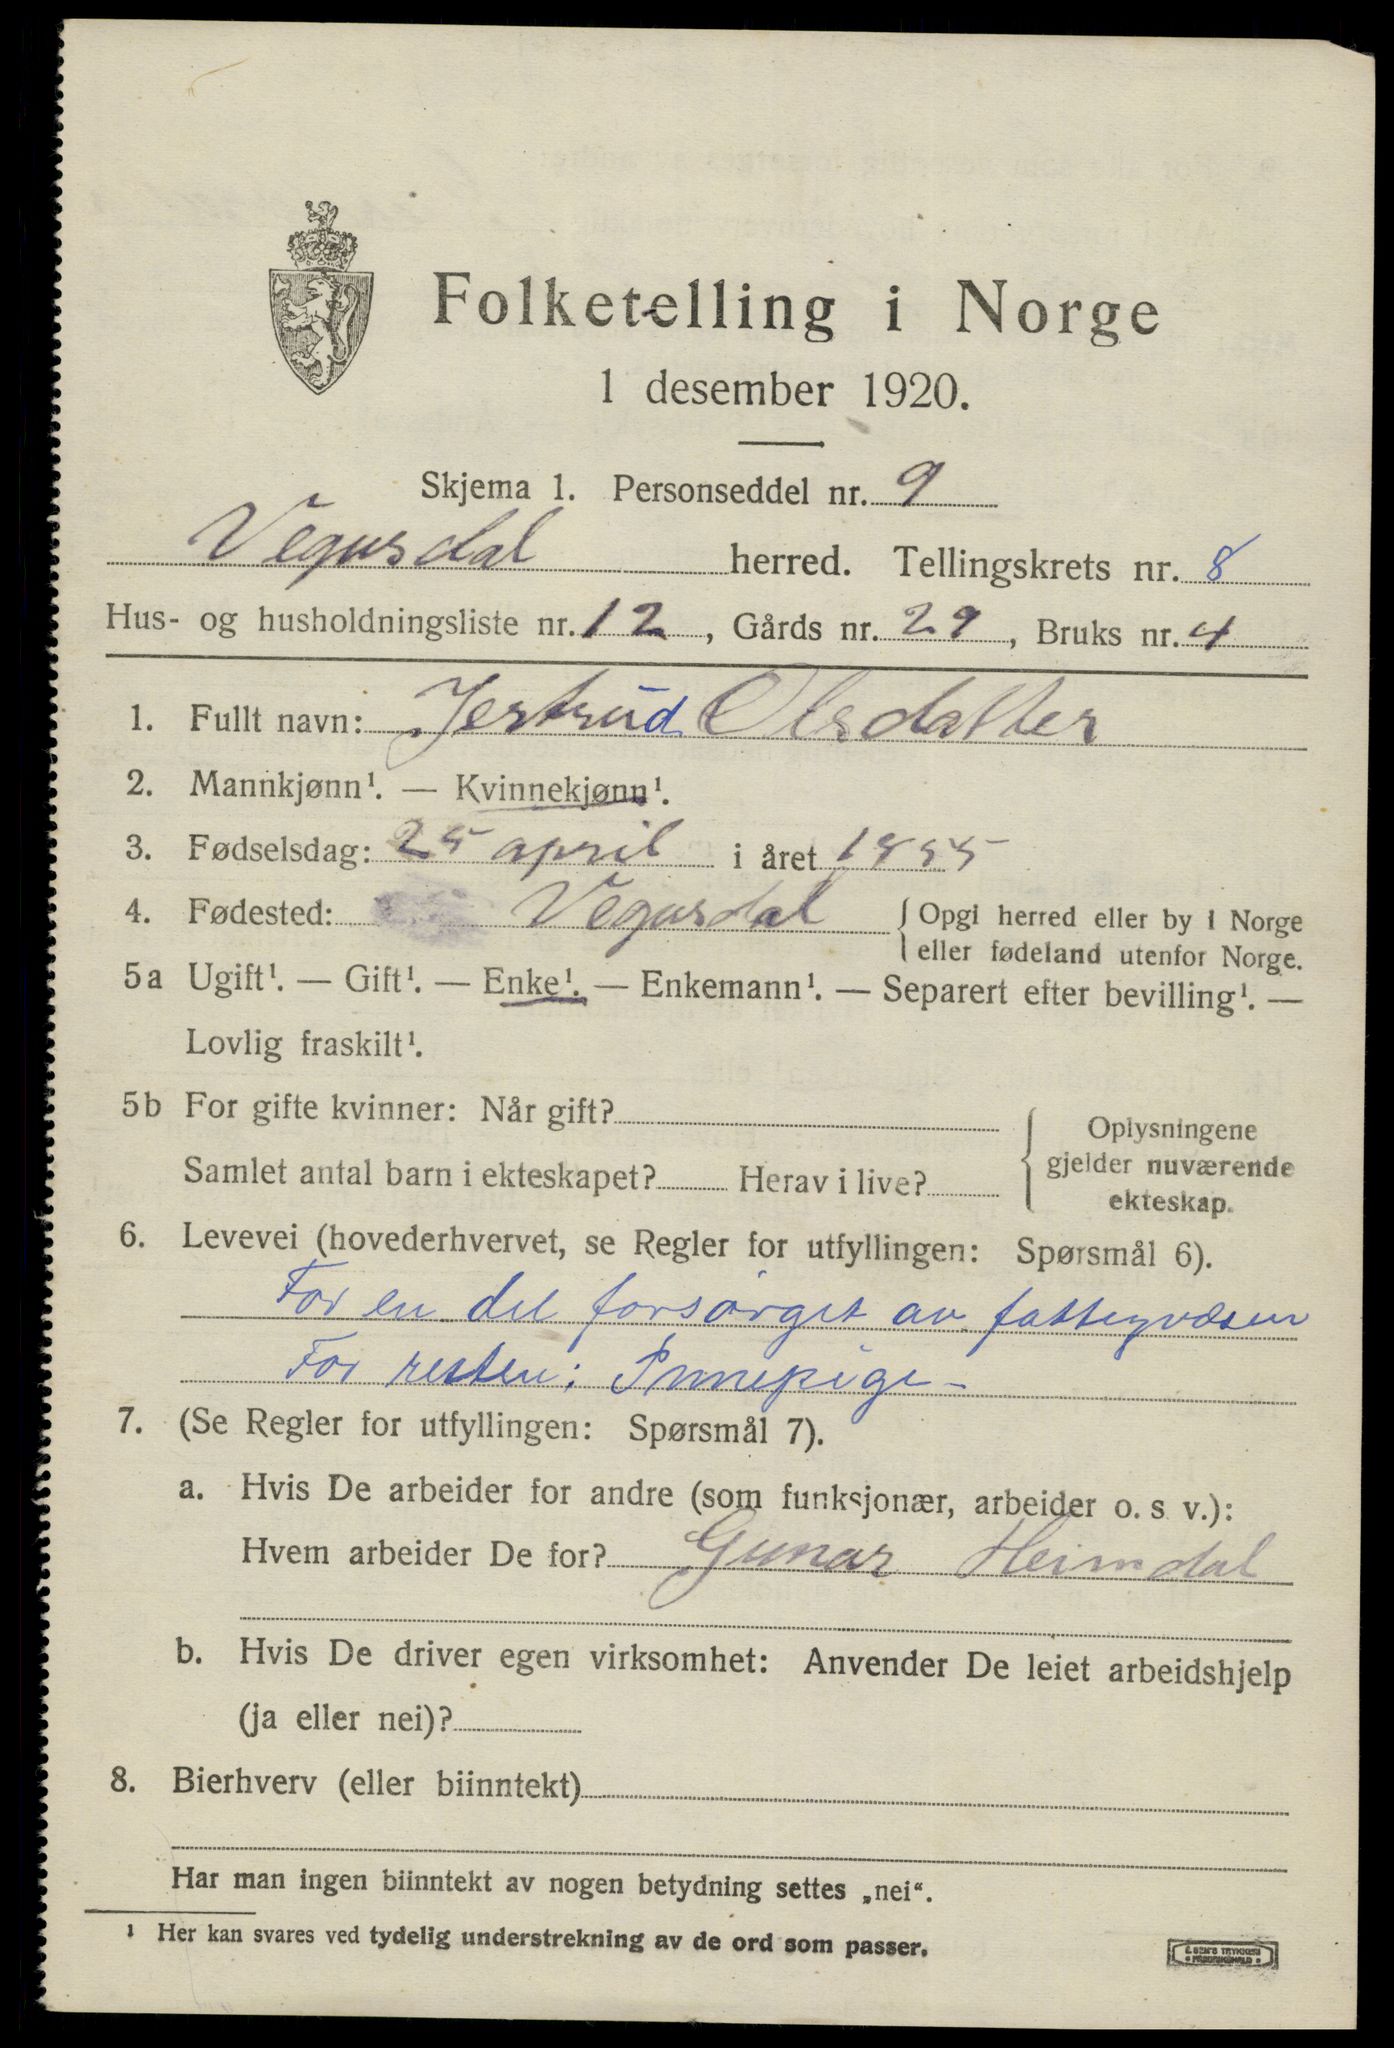 Folketelling i Norge
1 desember 1920.
Skjema 1. Personseddel nr. 9
Vegusdal herred. Tellingskrets nr. 8
Hus- og husholdningsliste nr. 12, Gårds nr. 29, Bruks nr. 4
1. Fullt navn: Jertrud Olsdatter
2. Mannkjønn¹. — Kvinnekjønn¹.
3. Fødselsdag: 25 april i året
4. Fødested: Vegusdal { Opgi herred eller by i Norge
eller fødeland utenfor Norge.
5a Ugift¹. — Gift¹. — Enke¹. — Enkemann¹. — Separert efter bevilling¹. —
Lovlig fraskilt¹.
5b For gifte kvinner: Når gift?
Samlet antal barn i ekteskapet? Herav i live?
{ Oplysningene
gjelder nuværende
ekteskap.
6. Levevei (hovederhvervet, se Regler for utfyllingen: Spørsmål 6).
For en del forsørget av fattigvæsen
For resten: Innepige-
7. (Se Regler for utfyllingen: Spørsmål 7).
a. Hvis De arbeider for andre (som funksjonær, arbeider o. s v.):
Hvem arbeider De for? Gunar Heimdal
b. Hvis De driver egen virksomhet: Anvender De leiet arbeidshjelp
(ja eller nei)?
8. Bierhverv (eller biinntekt)
Har man ingen biinntekt av nogen betydning settes „nei“.
¹ Her kan svares ved tydelig understrekning av de ord som passer.